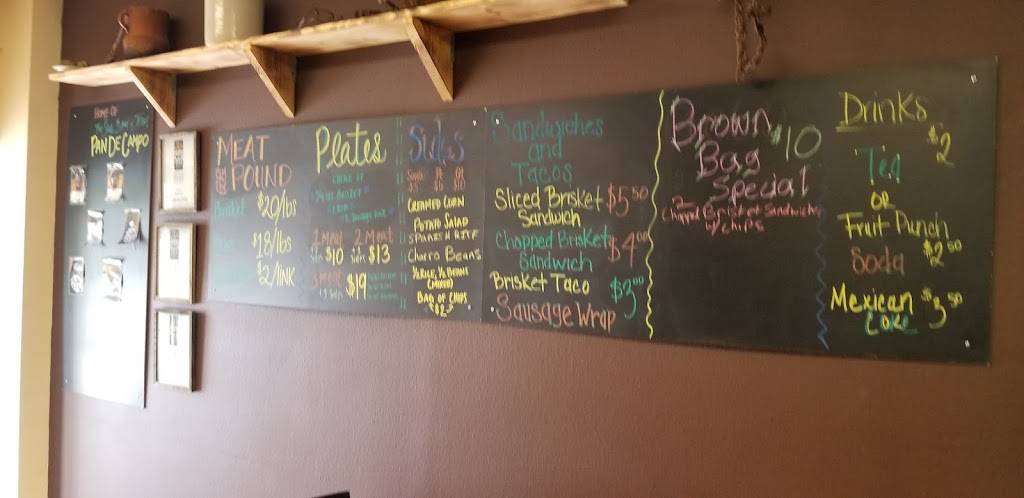 HOME OF
PAN DE CAMPO
MEAT
POUND
Brisket $20/lbs
$18/lbs
$2/LINK
Plates
1 meat 2 meat
$10 $13
3 meat
$19
Sides
CREAMED CORN
POTATO SALAD
SPANISH RICE
Charro Beans
½ RICE ½ BEANS
(MIXED)
BAG OF CHIPS
$2
Sandwiches
and
Tacos
Sliced Brisket $5.50
Sandwich
Chopped Brisket $4.00
Sandwich
Brisket Taco $3.00
Sausage Wrap
Brown $10
Bag
Special
2
Chopped Brisket Sandwiches
w/ chips
Drinks
$2
Tea
OR
Fruit Punch
Soda $2.00
Mexican $3.50
Coke